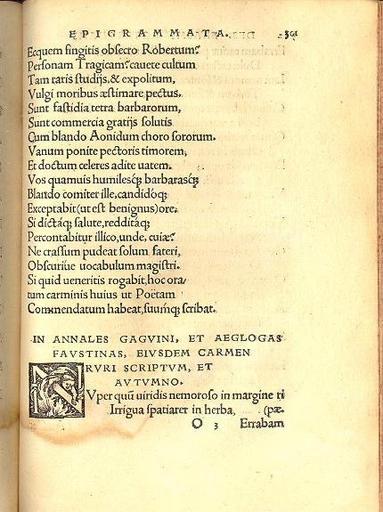 EPIGRAMMATA.
Ecquem fingitis obsecro Robertum?
Personam Tragicam? cauete cultum
Tam raris studijs, & expolitum,
Vulgi moribus æstimare pectus.
Sunt fastidia tetra barbarorum,
Sunt commercia gratijs solutis
Cum blando Aonidum choro sororum.
Vanum ponite pectoris timorem,
Et doctum celeres adite uatem.
Vos quamuis humilesq; barbarasq;
Blando comiter ille, candidoq;
Exceptabit (ut est benignus) ore.
Si dictaq; salute, redditaq;
Percontabitur illico, unde, cuiæ?
Ne crassum pudeat solum fateri,
Obscuriue uocabulum magistri.
Si quid ueneritis rogabit, hoc ora/
tum carminis huius ut Poëtam
Commendatum habeat, suumq; scribat.
IN ANNALES GAGVINI, ET AEGLOGAS
FAVSTINAS, EIVSDEM CARMEN
RVRI SCRIPTVM, ET
AVTVMNO.
NVper quū uiridis nemoroso in margine ri
Irrigua spatiarer in herba, (pæ.
O 3 Errabam